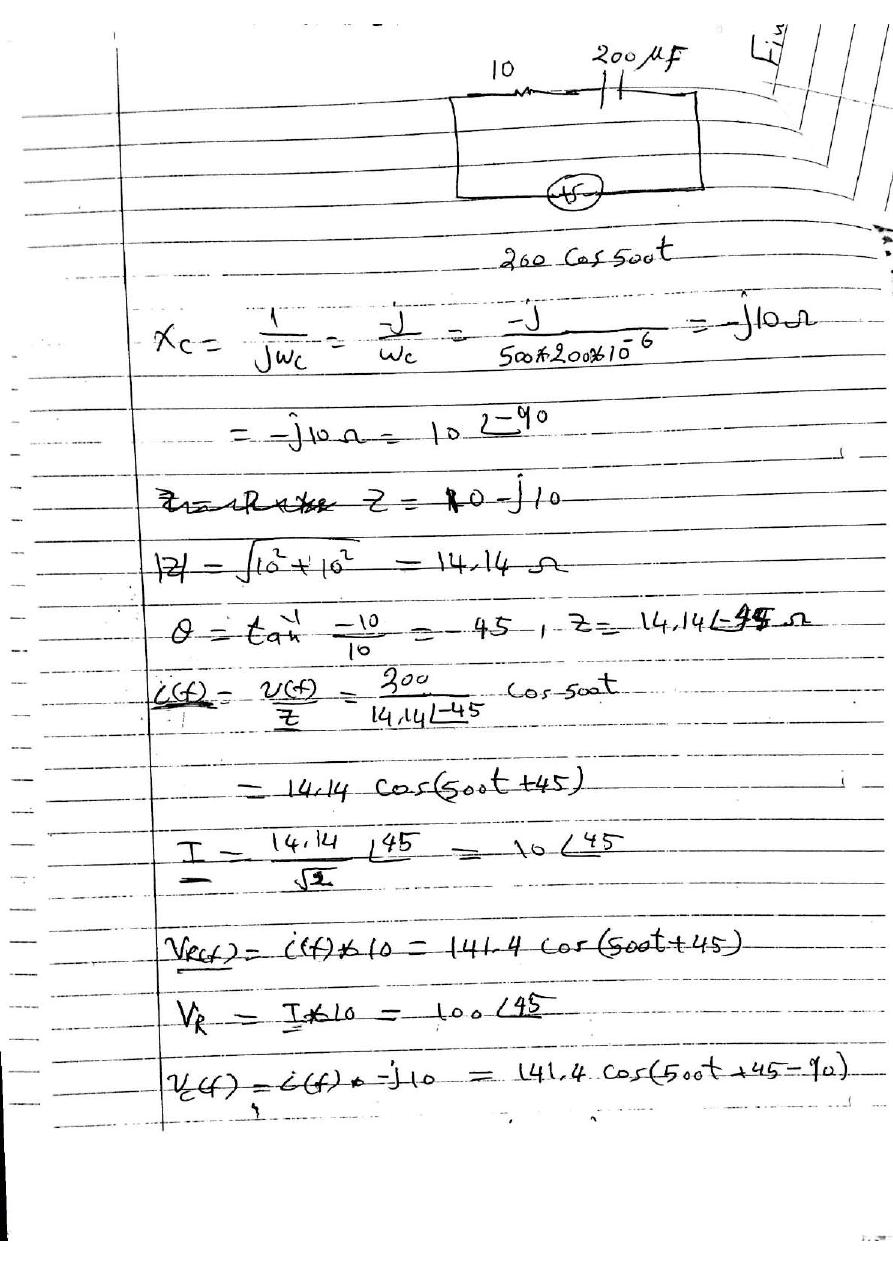 10 200 μF
+ -
200 Cos 500t
Xc = 1/jwc = -j/wc = -j/500*200*10^-6 = -j10Ω
= -j10Ω = 10 ∠-90
Z = 10-j10
|Z| = √10²+10² = 14.14 Ω
θ = tan^-1 -10/10 = -45 , Z = 14.14∠-45 Ω
i(t) = v(t)/Z = 200/14.14∠-45 Cos 500t
= 14.14 Cos(500t +45)
I = 14.14/√2 ∠45 = 10 ∠45
VR(t) = i(t)*10 = 141.4 Cos(500t+45)
VR = I*10 = 100∠45
Vc(t) = i(t)* -j10 = 141.4 Cos(500t +45-90)